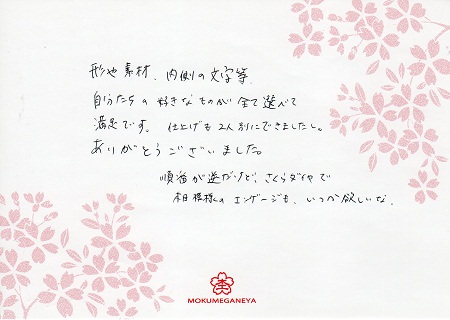 形や素材、内側の文字等、
自分たちの好きなものが全て選べて
満足です。仕上げも2人別にできましたし。
ありがとうございました。
順番が逆だけど、さくらダイヤで
木目模様のエンゲージも、いつか欲しいな。
MOKUMEGANEYA